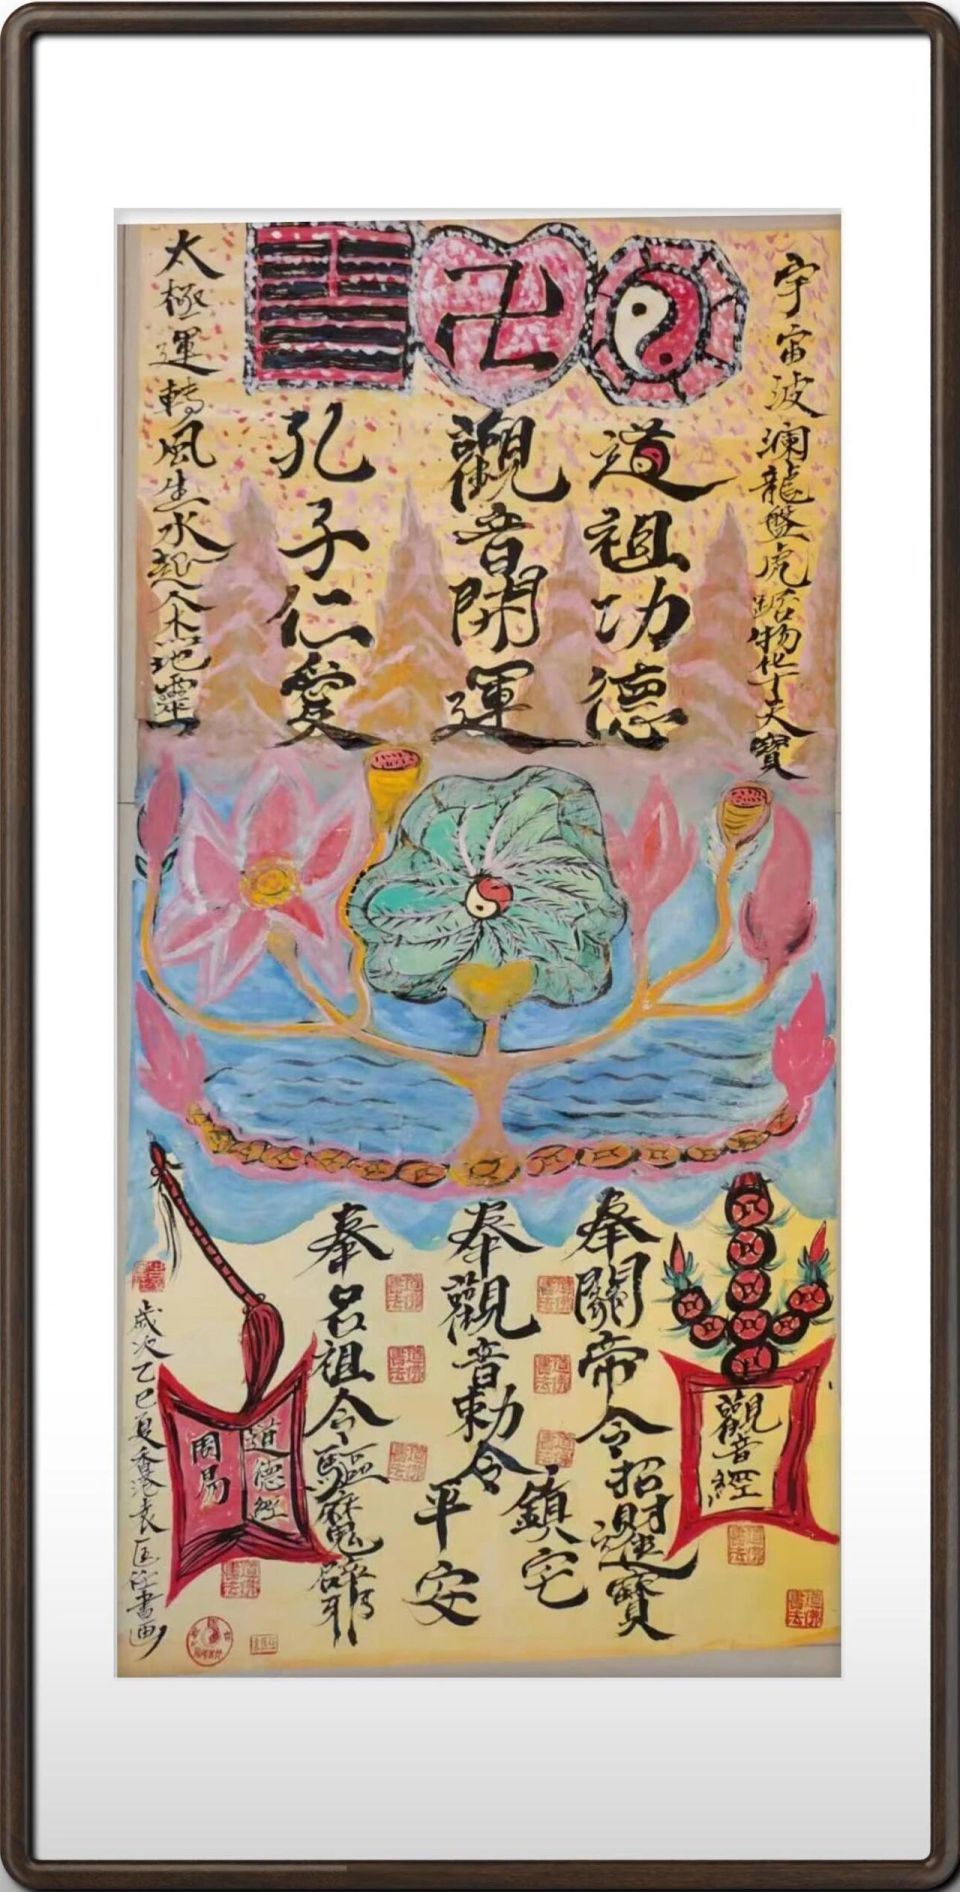 宇宙波澜龍盤虎踞物化天寶
道祖功德
觀音開運
孔子仁愛
太極運轉風生水起人杰地靈
觀音經
奉關帝令招財進寶
奉觀音勅令
鎮宅
平安
奉吕祖令驅魔辟耶
道德經
周易
歲次乙巳夏香港袁匡書画